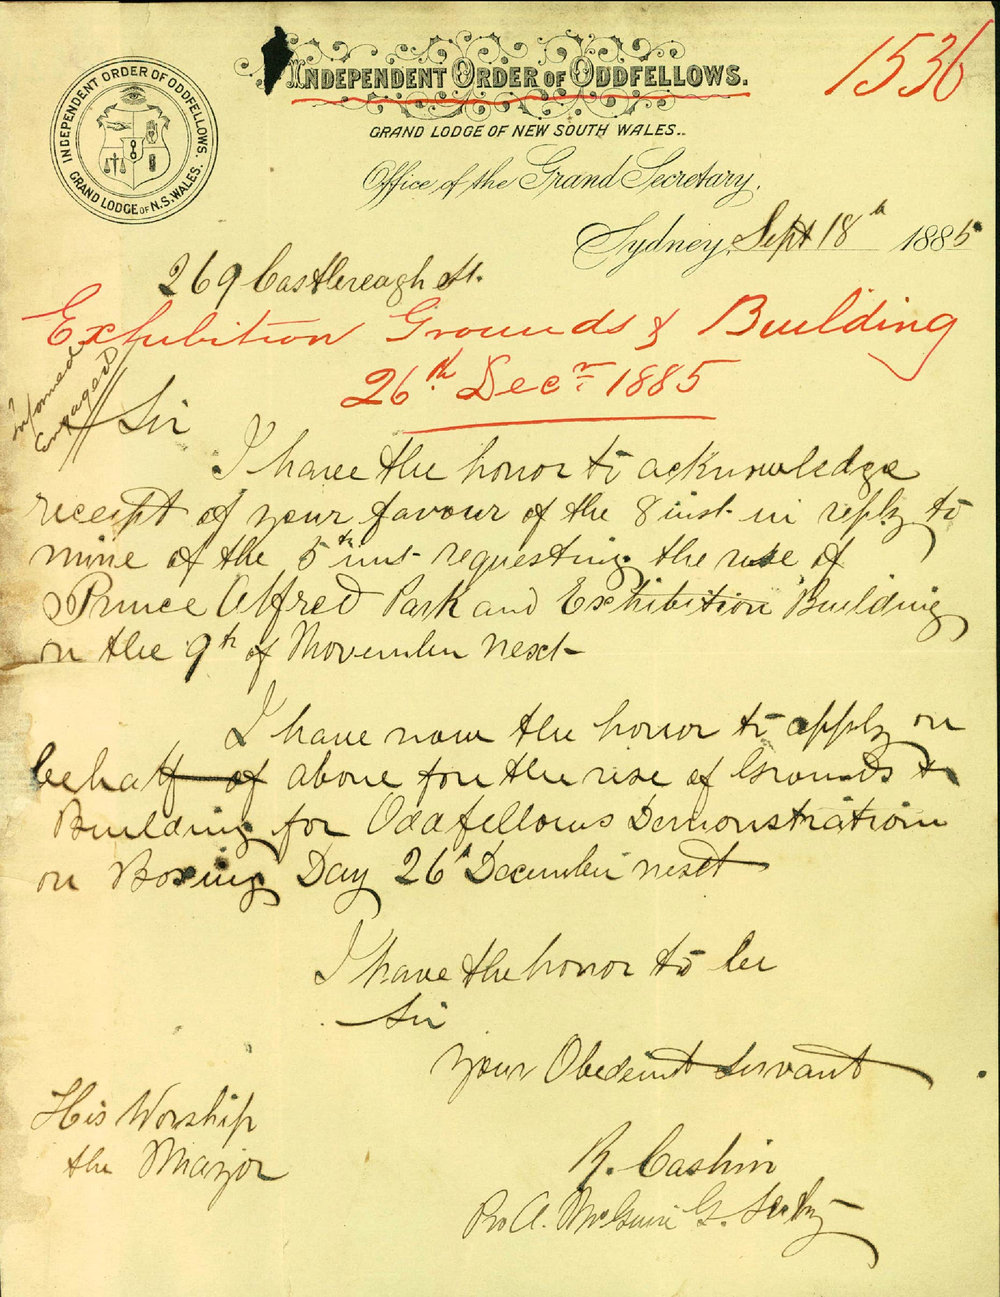 1536
INDEPENDENT ORDER OF ODDFELLOWS.
GRAND LODGE OF N.S.WALES.
INDEPENDENT ORDER OF ODDFELLOWS.
GRAND LODGE OF NEW SOUTH WALES..
Office of the Grand Secretary.
Sydney, Sept 18th 1885
269 Castlereagh St.
Exhibition Grounds & Building
26th Decr 1885
Informed
Engaged
Sir
I have the honor to acknowledge
receipt of your favour of the 8 inst in reply to
mine of the 5th inst requesting the use of
Prince Alfred Park and Exhibition Building
on the 9th of November next
I have now the honor to apply on
behalf of above for the use of Grounds &
Building for Oddfellows Demonstration
on Boxing Day 26th December next
I have the honor to be
Sir
your Obedient Servant
His Worship
the Mayor
R. Cashin
Pro A. McGuire G. Secty